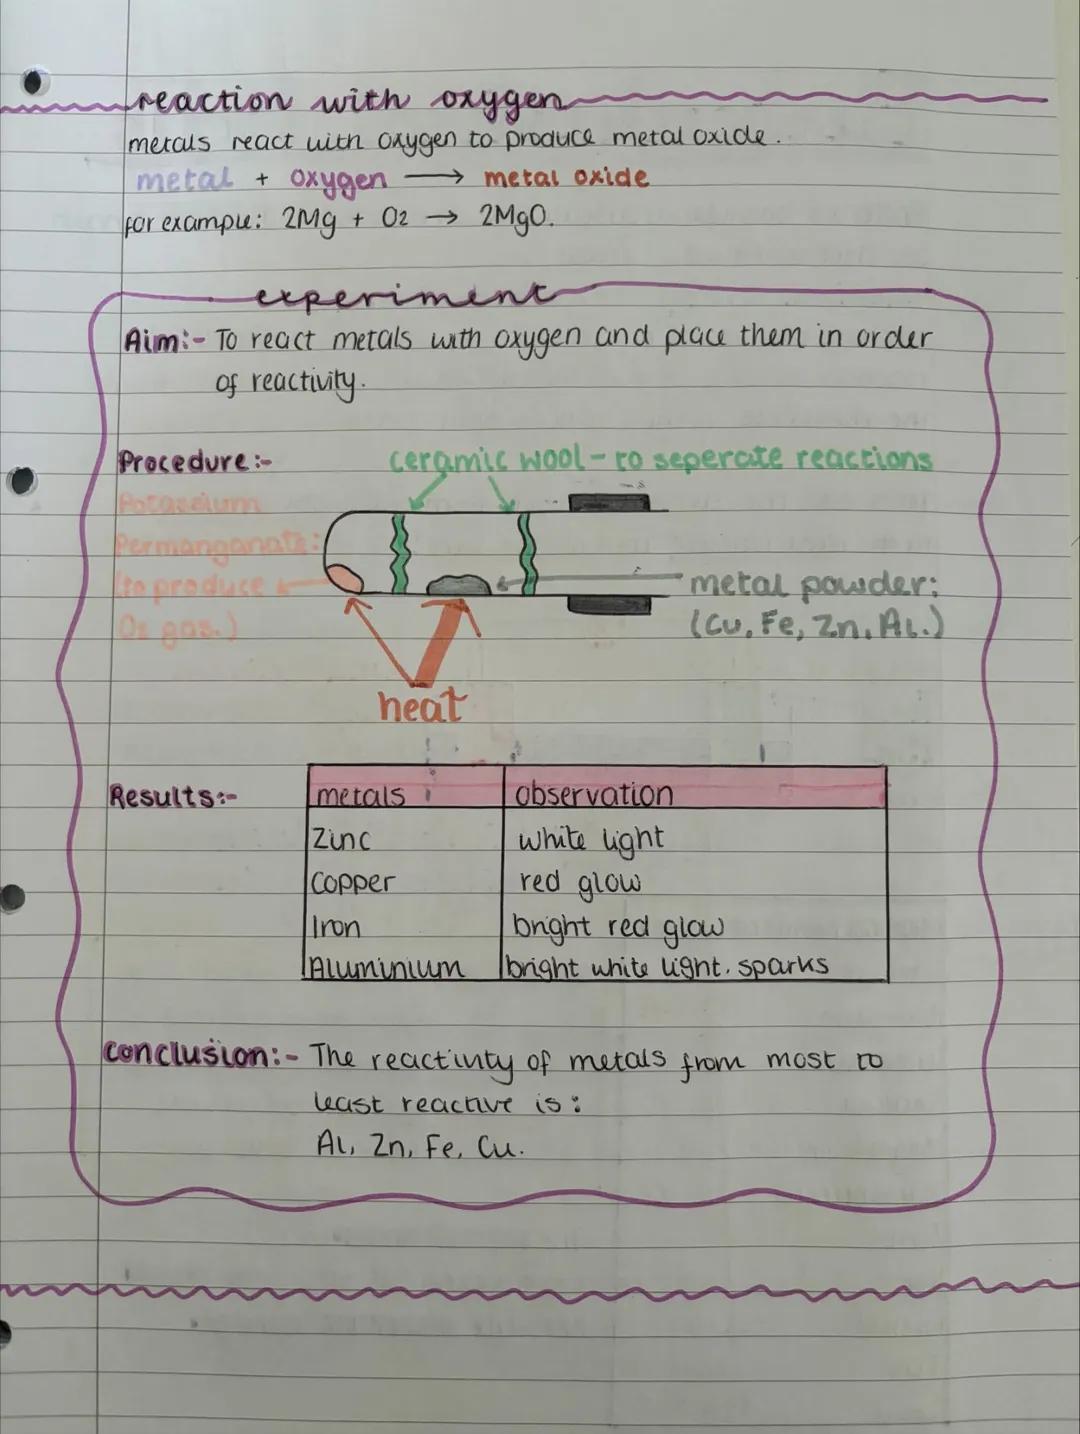 reaction with oxygen
metals react with oxygen to produce metal oxide.
metal + oxygen → metal oxide
for example: 2Mg + O2 → 2MgO.
experiment
Aim:- To react metals with oxygen and place them in order
of reactivity.
Procedure:-
ceramic wool - to seperate reactions
Potassium
Permanganate:
(to produce
O2 gas.)
metal powder:
(Cu, Fe, Zn, Al.)
heat
Results:-
metals observation
Zinc white light
Copper red glow
Iron bright red glow
Aluminium bright white light. sparks
Conclusion:- The reactivity of metals from most to
least reactive is:
Al, Zn, Fe, Cu.